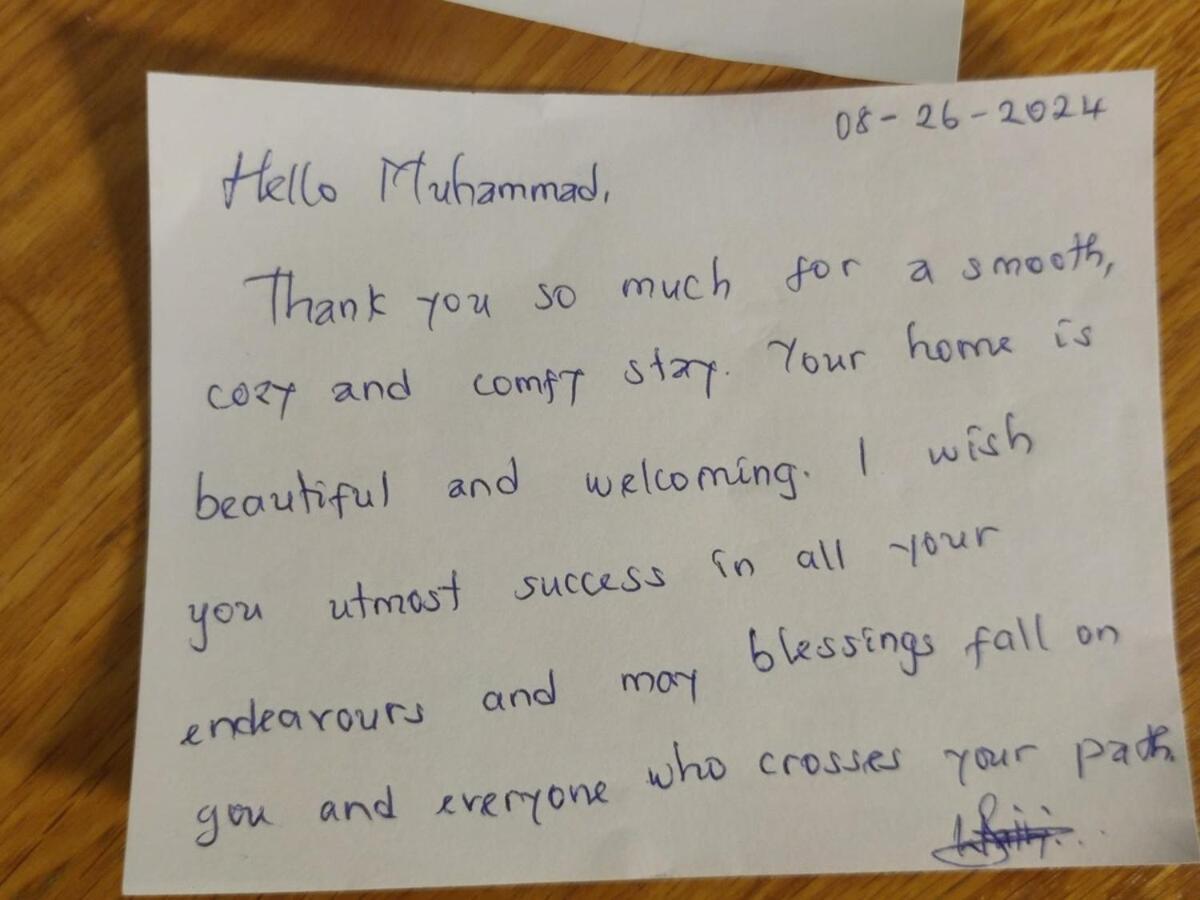 08-26-2024
Hello Muhammad,
Thank you so much for a smooth,
cozy and comfy stay. Your home is
beautiful and welcoming. I wish
you utmost success in all your
endeavours and may blessings fall on
you and everyone who crosses your path.